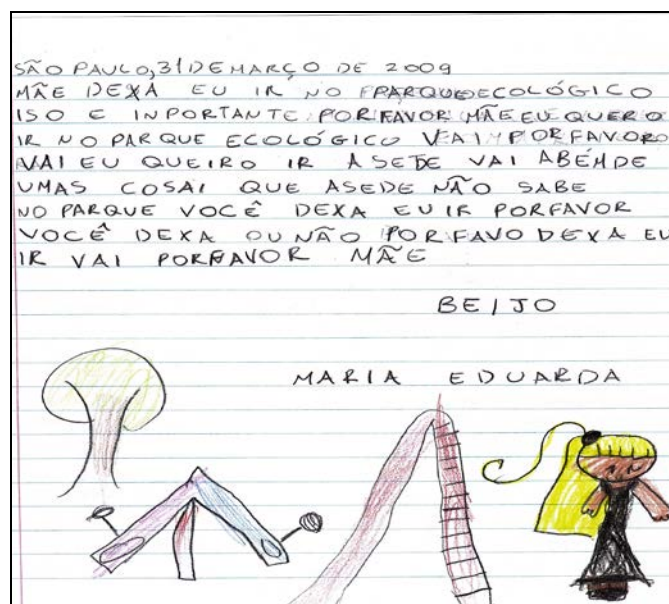 SÃO PAULO,31 DE MARÇO DE 2009
MÃE DEXA EU IR NO PARQUE ECOLÓGICO
ISO E INPORTANTE PORFAVOR MÃE EU QUERO
IR NO PARQUE ECOLÓGICO VAI PORFAVOR
VAI EU QUEIRO IR ASETE VAI ABÉMDE
UMAS COSAI QUE ASEDE NÃO SABE
NO PARQUE VOCÊ DEXA EU IR PORFAVOR
VOCÊ DEXA OU NÃO PORFAVO DEXA EU
IR VAI PORFAVOR MÃE
BEIJO
MARIA EDUARDA